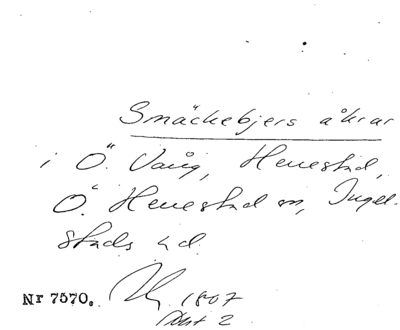 Smäckebjers åkrar
i Ö. Vång, Herrestad,
Ö. Herrestad sn, Ingel-
stads hd.
Nr 7570. 1807